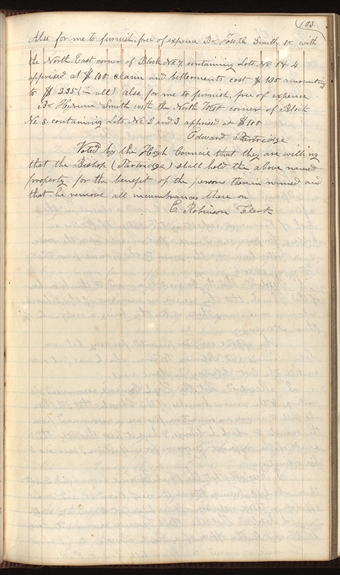 103
Also for me to furnish, free of expence Br Joseph Smith sr with
the North East corner of Block No 7. containing Lots No 1 & 4
apprised at $100 claim and bettlements cost $135 amounting
to $235 (in all) also for me to furnish, free of expence
Br Hiram Smith with the North West corner of Block
No 8. containing Lots No 2 and 3 apprised at $100
Edward Partridge
Voted by the High Council that they are willing
that the Bishop (Partridge) shall hold the above named
property for the benefit of the persons therein named and
that he remove all incumbrances there on
E. Robinson Clerk